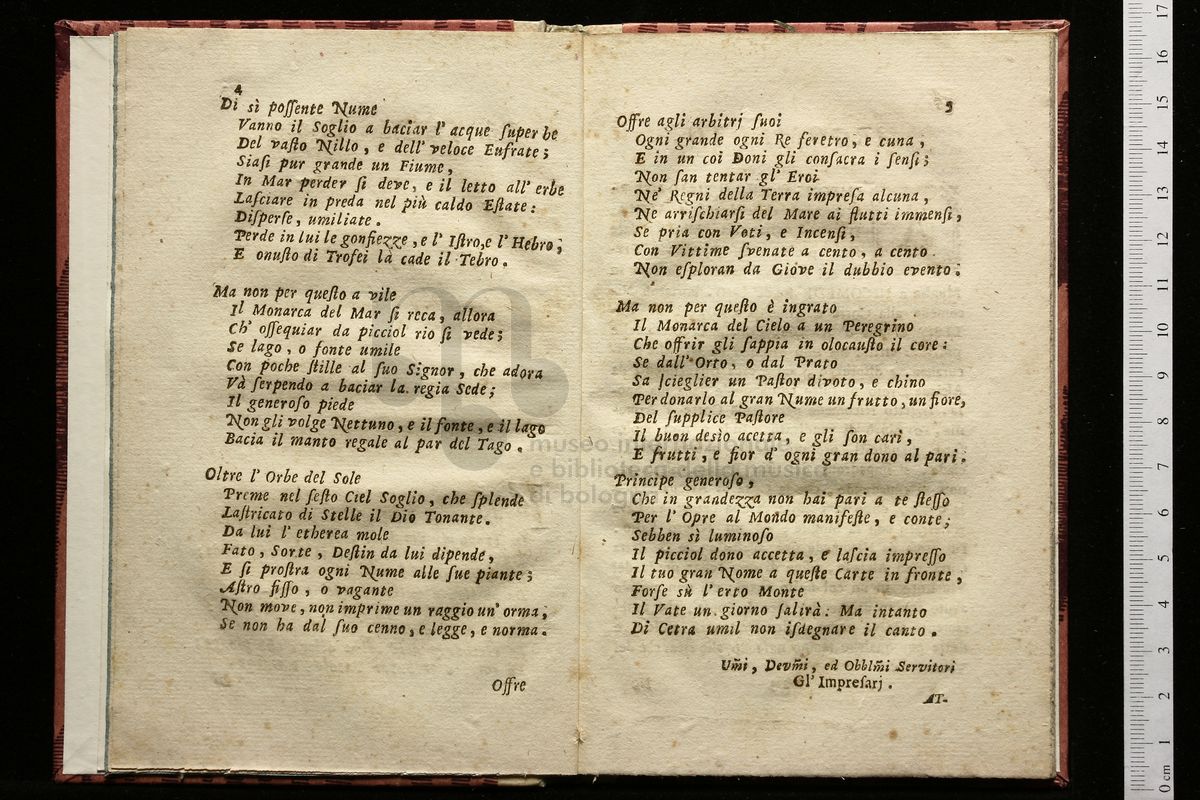 4
Di sì poſſente Nume
Vanno il Soglio a baciar l' acque ſuperbe
Del vaſto Nillo, e dell' veloce Eufrate;
Siaſi pur grande un Fiume,
In Mar perder ſi deve, e il letto all' erbe
Laſciare in preda nel più caldo Eſtate:
Diſperſe, umiliate.
Perde in lui le gonfiezze, e l' Iſtro, e l' Hebro;
E onuſto di Trofei là cade il Tebro.
Ma non per queſto a vile
Il Monarca del Mar ſi reca, allora
Ch' oſſequiar da picciol rio ſi vede;
Se lago, o fonte umile
Con poche ſtille al ſuo Signor, che adora
Và ſerpendo a baciar la regia Sede;
Il generoſo piede
Non gli volge Nettuno, e il fonte, e il lago
Bacia il manto regale al par del Tago.
Oltre l' Orbe del Sole
Preme nel ſeſto Ciel Soglio, che ſplende
Laſtricato di Stelle il Dio Tonante.
Da lui l' etherea mole
Fato, Sorte, Deſtin da lui dipende,
E ſi proſtra ogni Nume alle ſue piante;
Aſtro fiſſo, o vagante
Non move, non imprime un raggio un' orma,
Se non ha dal ſuo cenno, e legge, e norma.
Offre
5
Offre agli arbitrj ſuoi
Ogni grande ogni Re feretro, e cuna,
E in un coi Doni gli conſacra i ſenſi;
Non ſan tentar gl' Eroi
Ne' Regni della Terra impreſa alcuna,
Ne arriſchiarſi del Mare ai flutti immenſi,
Se pria con Voti, e Incenſi,
Con Vittime ſvenate a cento, a cento
Non eſploran da Giove il dubbio evento.
Ma non per queſto è ingrato
Il Monarca del Cielo a un Peregrino
Che offrir gli ſappia in olocauſto il core:
Se dall' Orto, o dal Prato
Sa ſcieglier un Paſtor divoto, e chino
Per donarlo al gran Nume un frutto, un fiore,
Del ſupplice Paſtore
Il buon desìo acetta, e gli ſon cari,
E frutti, e fior d' ogni gran dono al pari.
Principe generoſo,
Che in grandezza non hai pari a te ſteſſo
Per l' Opre al Mondo manifeſte, e conte;
Sebben sì luminoſo
Il picciol dono accetta, e laſcia impreſſo
Il tuo gran Nome a queſte Carte in fronte,
Forſe sù l' erto Monte
Il Vate un giorno ſalirà: Ma intanto
Di Cetra umil non iſdegnare il canto.
Um̃i, Devm̃i, ed Obblm̃i Servitori
Gl' Impreſarj.
AT-
museo internazionale
e biblioteca della musica
di bologna
0 cm 1 2 3 4 5 6 7 8 9 10 11 12 13 14 15 16 17